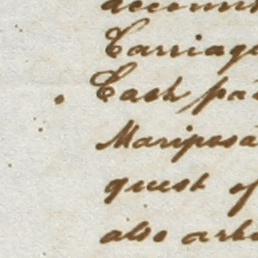 account
Carriage
Cash pa
Mariposa
quest of
also